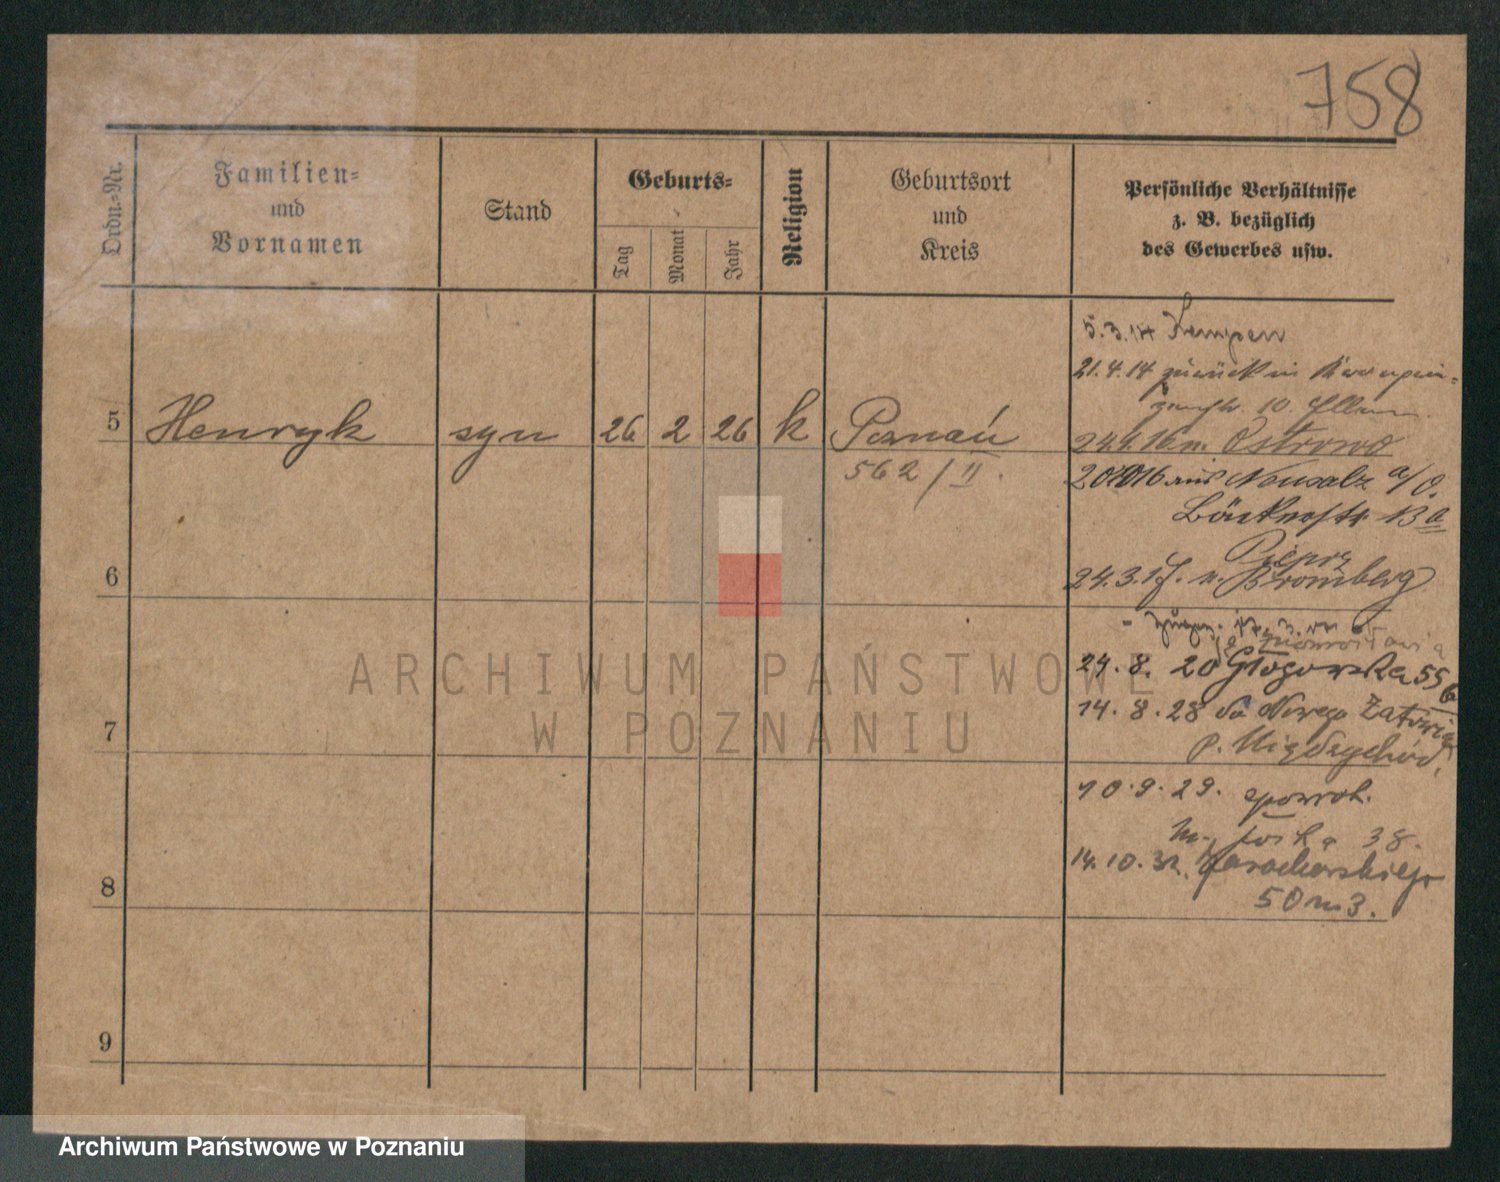 758
Ordn.-Nr.
Familien-
und
Vornamen
Stand
Geburts-
Tag
Monat
Jahr
Religion
Geburtsort
und
Kreis
Persönliche Verhältnisse
z. B. bezüglich
des Gewerbes usw.
5.3.14 Kempen
21.4.14 zurück in
10.
5 Henryk syn 26 2 26 k Poznań
562/II.
Ostrowo
aus Neusalz a/O.
13a
6
Pieprz
24.3.17. n. Bromberg
24.8.20 Głogowska 55
7
14.8.28 do Nowego
p. Międzychód,
10.9.29.
38.
8
14.10.32.
50 m 3.
9
ARCHIWUM PAŃSTWOWE
W POZNANIU
Archiwum Państwowe w Poznaniu